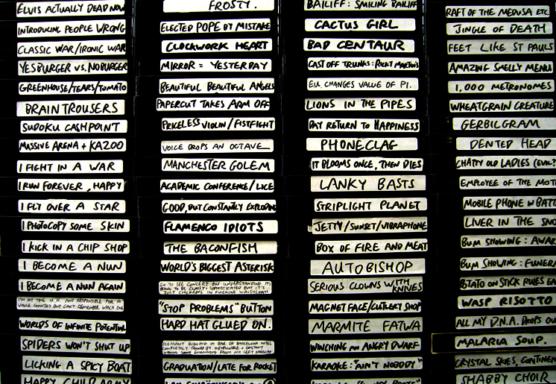 ELVIS ACTUALLY DEAD NOW
INTRODUCING PEOPLE WRONG
CLASSIC WAR/IRONIC WAR
YESBURGER VS. NOBURGER
GREENHOUSE/TEARS/TOMATO
BRAIN TROUSERS
SUDOKU CASHPOINT
MASSIVE ARENA + KAZOO
I FIGHT IN A WAR
I RUN FOREVER, HAPPY
I FLY OVER A STAR
I PHOTOCOPY SOME SKIN
I KICK IN A CHIP SHOP
I BECOME A NUN
I BECOME A NUN AGAIN
WORLDS OF INFINITE POTENTIAL
SPIDERS WON'T SHUT UP
LICKING A SPICY BOAT
HAPPY CHILD ARMY
FROSTY.
ELECTED POPE BY MISTAKE
CLOCKWORK HEART
MIRROR = YESTERDAY
BEAUTIFUL BEAUTIFUL ANGELS
PAPERCUT TAKES ARM OFF
PRICELESS VIOLIN/FISTFIGHT
VOICE DROPS AN OCTAVE
MANCHESTER GOLEM
ACADEMIC CONFERENCE/LICE
GOOD, BUT CONSTANTLY EXPLODING
FLAMENCO IDIOTS
THE BACONFISH
WORLD'S BIGGEST ASTERISK
"STOP PROBLEMS" BUTTON
HARD HAT GLUED ON.
GRADUATION/LATE FOR ROCKET
BAILIFF: SMILING BAILIFF
CACTUS GIRL
BAD CENTAUR
CAST OFF TRUNKS:
EU CHANGES VALUE OF PI.
LIONS IN THE PIPES
DAY RETURN TO HAPPINESS
PHONECLAG
IT BLOOMS ONCE, THEN DIES
LANKY BASTS
STRIPLIGHT PLANET
JETTY/SUNSET/VIBRAPHONE
BOX OF FIRE AND MEAT
AUTOBISHOP
SERIOUS CLOWNS WITH KNIVES
MAGNET FACE/CUTLERY SHOP
MARMITE FATWA
WINCHING AN ANGRY DWARF
KARAOKE: "AIN'T NOBODY"
RAFT OF THE MEDUSA ETC
JINGLE OF DEATH
FEET LIKE ST PAULS
AMAZING SMELLY MENU
1,000 METRONOMES
WHEATGRAIN CREATURE
GERBILGRAM
DENTED HEAD
CHATTY OLD LADIES
EMPLOYEE OF THE
MOBILE PHONE IN
LIVER IN THE
BUM SHOWING:
BUM SHOWING:
POTATO ON STICK RULES
WASP RISOTTO
ALL MY D.N.A. DROPS
MALARIA SOUP.
CRYSTAL SKIES,
SHABBY CHOIR